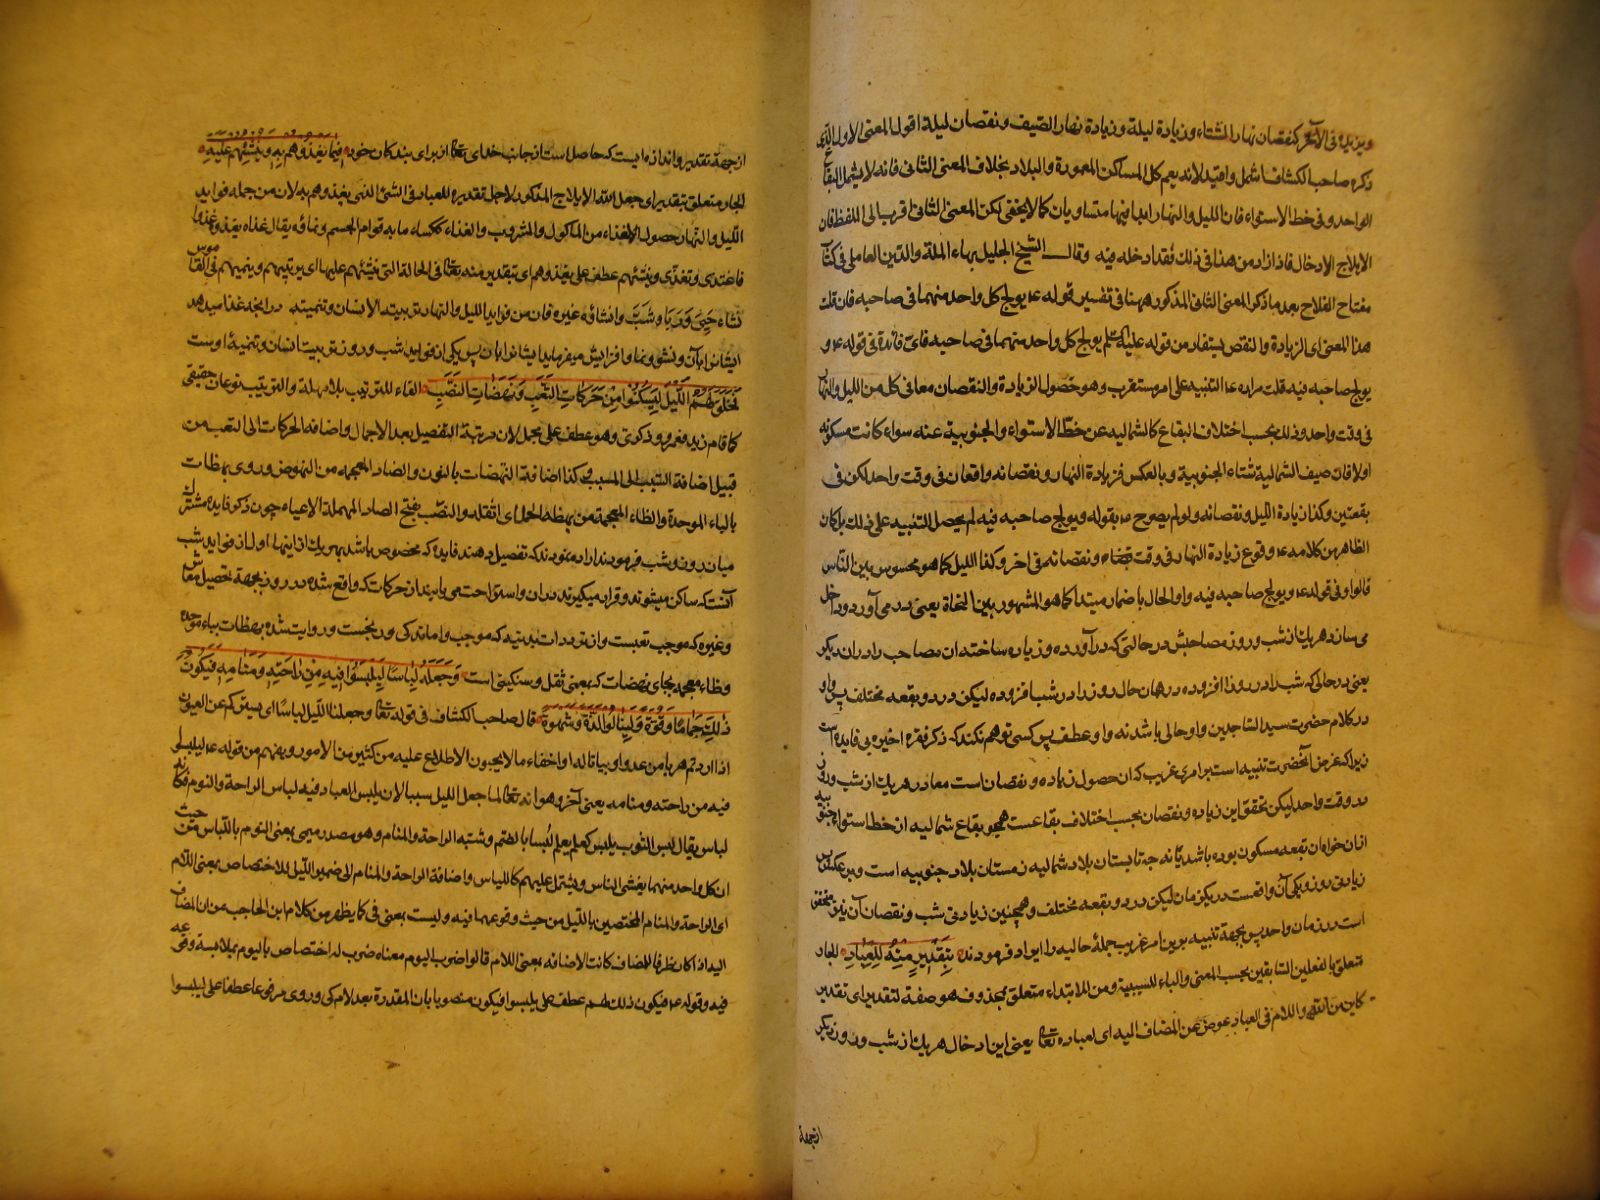 ویزیده فی الآخر کنقصان نهار الشتاء وزیادة لیلة وزیادة نهار الصیف ونقصان لیلة اقول المعنی الاول الذی
ذکره صاحب الکشاف اشمل وافید لانه یعم کل المساکن المعمورة والبلاد بخلاف المعنی الثانی فانه لا یشمل البقاع
الواحد وفی خط الاستواء فان اللیل والنهار ابدا فیها متساویان کما لا یخفی لکن المعنی الثانی اقرب الی اللفظ فان
الایلاج الادخال فاذا زاد من هذا فی ذلک فقد ادخله فیه وقال الشیخ الجلیل بهاء الملة والدین العاملی فی کتاب
مفتاح الفلاح بعد ما ذکر المعنی الثانی المذکور ههنا فی تفسیر قوله ع یولج کل واحد منهما فی صاحبه فان قلت
هذا المعنی ای الزیادة والنقص یستفاد من قوله علیه السلام یولج کل واحد منهما فی صاحبه فای فائدة فی قوله ع و
یولج صاحبه فیه قلت مراده التنبیه علی امر مستغرب وهو حصول الزیادة والنقصان معا فی کل من اللیل والنهار
فی وقت واحد وذلک بحسب اختلاف البقاع کالشمالیه عن خط الاستواء والجنوبیة عنه سواء کانت مسکونه
اولا فان صیف الشمالیة شتاء الجنوبیة وبالعکس فزیادة النهار ونقصانه واقعان فی وقت واحد لکن فی
بقعتین وکذا زیادة اللیل ونقصانه ولو لم یصرح ع بقوله ویولج صاحبه فیه لم یحصل التنبیه علی ذلک بل کان
الظاهر من کلامه ع وقوع زیادة النهار فی وقت ونقصانه فی اخر وکذا اللیل کما هو محسوس بین الناس
قالوا وفی قوله ع ویولج صاحبه فیه واو الحال باضمار مبتدا کما هو المشهور بین النحاة یعنی در می آورد وداخل
می سازد هر یک از شب وروز مصاحبش در حالتی که در آورده وزیاده ساخته ان مصاحب را در ان دیگر
یعنی در حالی که شب را در روز افزوده در همان حال روز را در شب افزوده لیکن در دو بقعه مختلف پس واو
در کلام حضرت سید الساجدین واو حالی باشد نه واو عطف پس کسی توهم نکند که ذکر فقره اخیره بی فایده است
زیرا که غرض آنحضرت تنبیه است بر امری غریب که ان حصول زیاده ونقصان است معا در هر یک از شب وروز
در وقت واحد لیکن تحقق این زیاده ونقصان بحسب اختلاف بقاعست همچو بقاع شمالیه از خط استوا وجنوبیه
از ان خواه ان بقعه مسکون بوده باشد یا نه چه تابستان بلاد شمالیه زمستان بلاد جنوبیه است وبر عکس پس
زیادتی روز ویکی آن واقعست در یک زمان لیکن در دو بقعه مختلف وهمچنین زیادتی شب ونقصان آن نیز متحقق
است در زمان واحد پس بجهة تنبیه بر این امر غریب جملهٔ حالیه را ایراد فرمودند بتقدیر منه للعباد الجار
متعلق بالفعلین السابقین بحسب المعنی والباء للسببیة ومن للابتداء متعلق بمحذوف هو صفة لتقدیر ای تقدیر
کاین من الله واللام فی العباد عوض عن المضاف الیه ای لعباده تعالی یعنی این ادخال هر یک از شب وروز در دیگر
از جهة
از جهة تقدیر واندازه ایست که حاصل است از جانب خدای تعالی از برای بندکان خود فیما یغذوهم به وینشئهم علیه
الجار متعلق بتقدیر ای جعل الله الایلاج المذکور لاجل تقدیره للعباد فی الشیء الذی یغذوهم به لان من جمله فواید
اللیل والنهار حصول الاغذاء من الماکول والمشروب والغذاء ککساء ما به قوام الجسم ونماؤه یقال غذاه یغذوه غذوا
فاغتذی وتغذی وینشئهم عطف علی یغذوهم ای بتقدیر منه تعالی فی الحالة التی ینشئهم علیها ای یربیهم وینمیهم فی القاموس
نشاء حیی وربا وشب وانشاؤه غیره فان من فواید اللیل والنهار تربیت الانسان وتنمیته در انچه غذا میدهد
ایشانرا بآن ونشو ونما وافزایش میفرماید ایشانرا بان پس یکی از فواید شب وروز تربیت انسان وتنمیهٔ اوست
فخلق لهم اللیل لیسکنوا فیه من حرکات التعب ونهضات النصب الفاء للترتیب بلا مهلة والترتیب نوعان حقیقی
کما قام زید فعمرو وذکری وهو عطف مفصل علی مجمل لان مرتبة التفصیل بعد الاجمال واضافه الحرکات الی التعب من
قبیل اضافة السبب الی المسبب وکذا اضافة النهضات بالنون والضاد المعجمه من النهوض وروی بهظات
بالباء الموحدة والظاء المعجمة من بهظه الحمل ای اثقله والنصب بفتح الصاد المهملة الاعیاء چون ذکر فایده مشترک
میان روز وشب فرمودند اراده نمودند که تفصیل دهند فایده که مخصوص باشد بهر یک از اینها اول از فواید شب
آنست که ساکن میشوند وقرار میکیرند در ان واستراحت می یابند از حرکات که واقع شده در روز بجهة تحصیل معاش
وغیره که موجب تعبست واز ترددات بدنیه که موجب واماندکی ورنجست وروایت شده بهظات بباء موحده
وظاء معجمه بجای نهضات که بمعنی ثقل وسنکینی است وجعله لباسا لیلبسوا فیه من راحته ومنامه فیکون
ذلک جماما وقوة ولینالوا لذة وشهوة قال صاحب الکشاف فی قوله تعالی وجعلنا اللیل لباسا ای یسترکم عن العیون
اذا اردتم هربا من عدو او بیاتا له او اخفاء ما لا یحبون الاطلاع علیه من کثیر من الامور ویفهم من قوله ع لیلبسوا
فیه من راحته ومنامه یعنی آخر وهو انه تعالی لما جعل اللیل سببا لان یلبس العباد فیه لباس الراحة والنوم فکانه
لباس یقال لبس الثوب یلبس کعلم یعلم لبسا بالضم وشبه الراحة والمنام وهو مصدر میمی بمعنی النوم باللباس من حیث
ان کل واحد منهما یغشی الناس ویشتمل علیهم کاللباس واضافة الراحة والمنام الی ضمیر اللیل للاختصاص بمعنی اللام
ای الراحة والمنام المختصین باللیل من حیث وقوعهما فیه ولیست بمعنی فی کما یظهر من کلام ابن الحاجب من ان المضاف
الیه اذا کان ظرفا للمضاف کانت الاضافه بمعنی اللام قالوا ضرب الیوم معناه ضرب له اختصاص بالیوم بملابسة وقوعه
فیه وقوله ع فیکون ذلک لهم عطف علی یلبسوا فیکون منصوبا بان المقدرة بعد لام کی وروی مرفوعا عطفا علی لیلبسوا